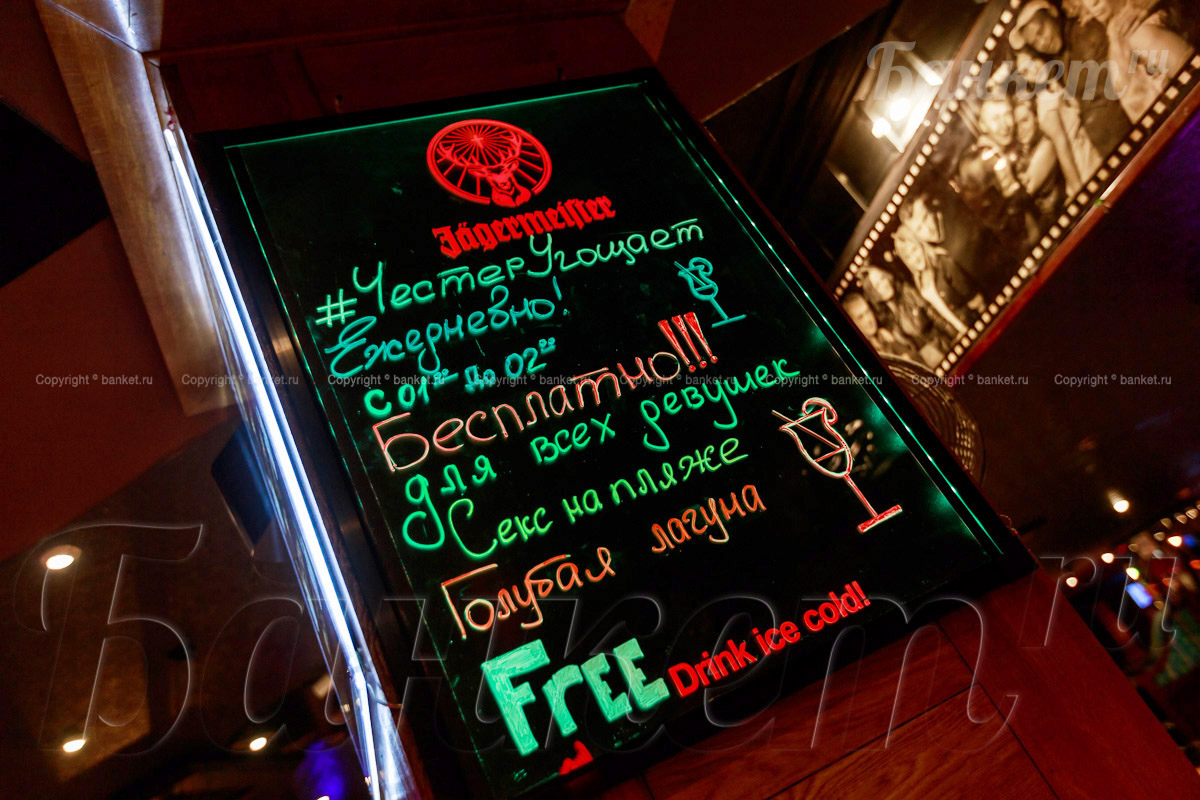 Банкет.ru
Jägermeister
#ЧестерУгощает
Ежедневно!
с 01⁰⁰ до 02⁰⁰
Бесплатно!!!
для всех девушек
Секс на пляже
Голубая лагуна
FrEE Drink ice cold!
Copyright © banket.ru Copyright © banket.ru Copyright © banket.ru Copyright © banket.ru Copyright © banket.ru Copyright © banket.ru Copyright © banket.ru Copyright © banket.ru
Банкет.ru